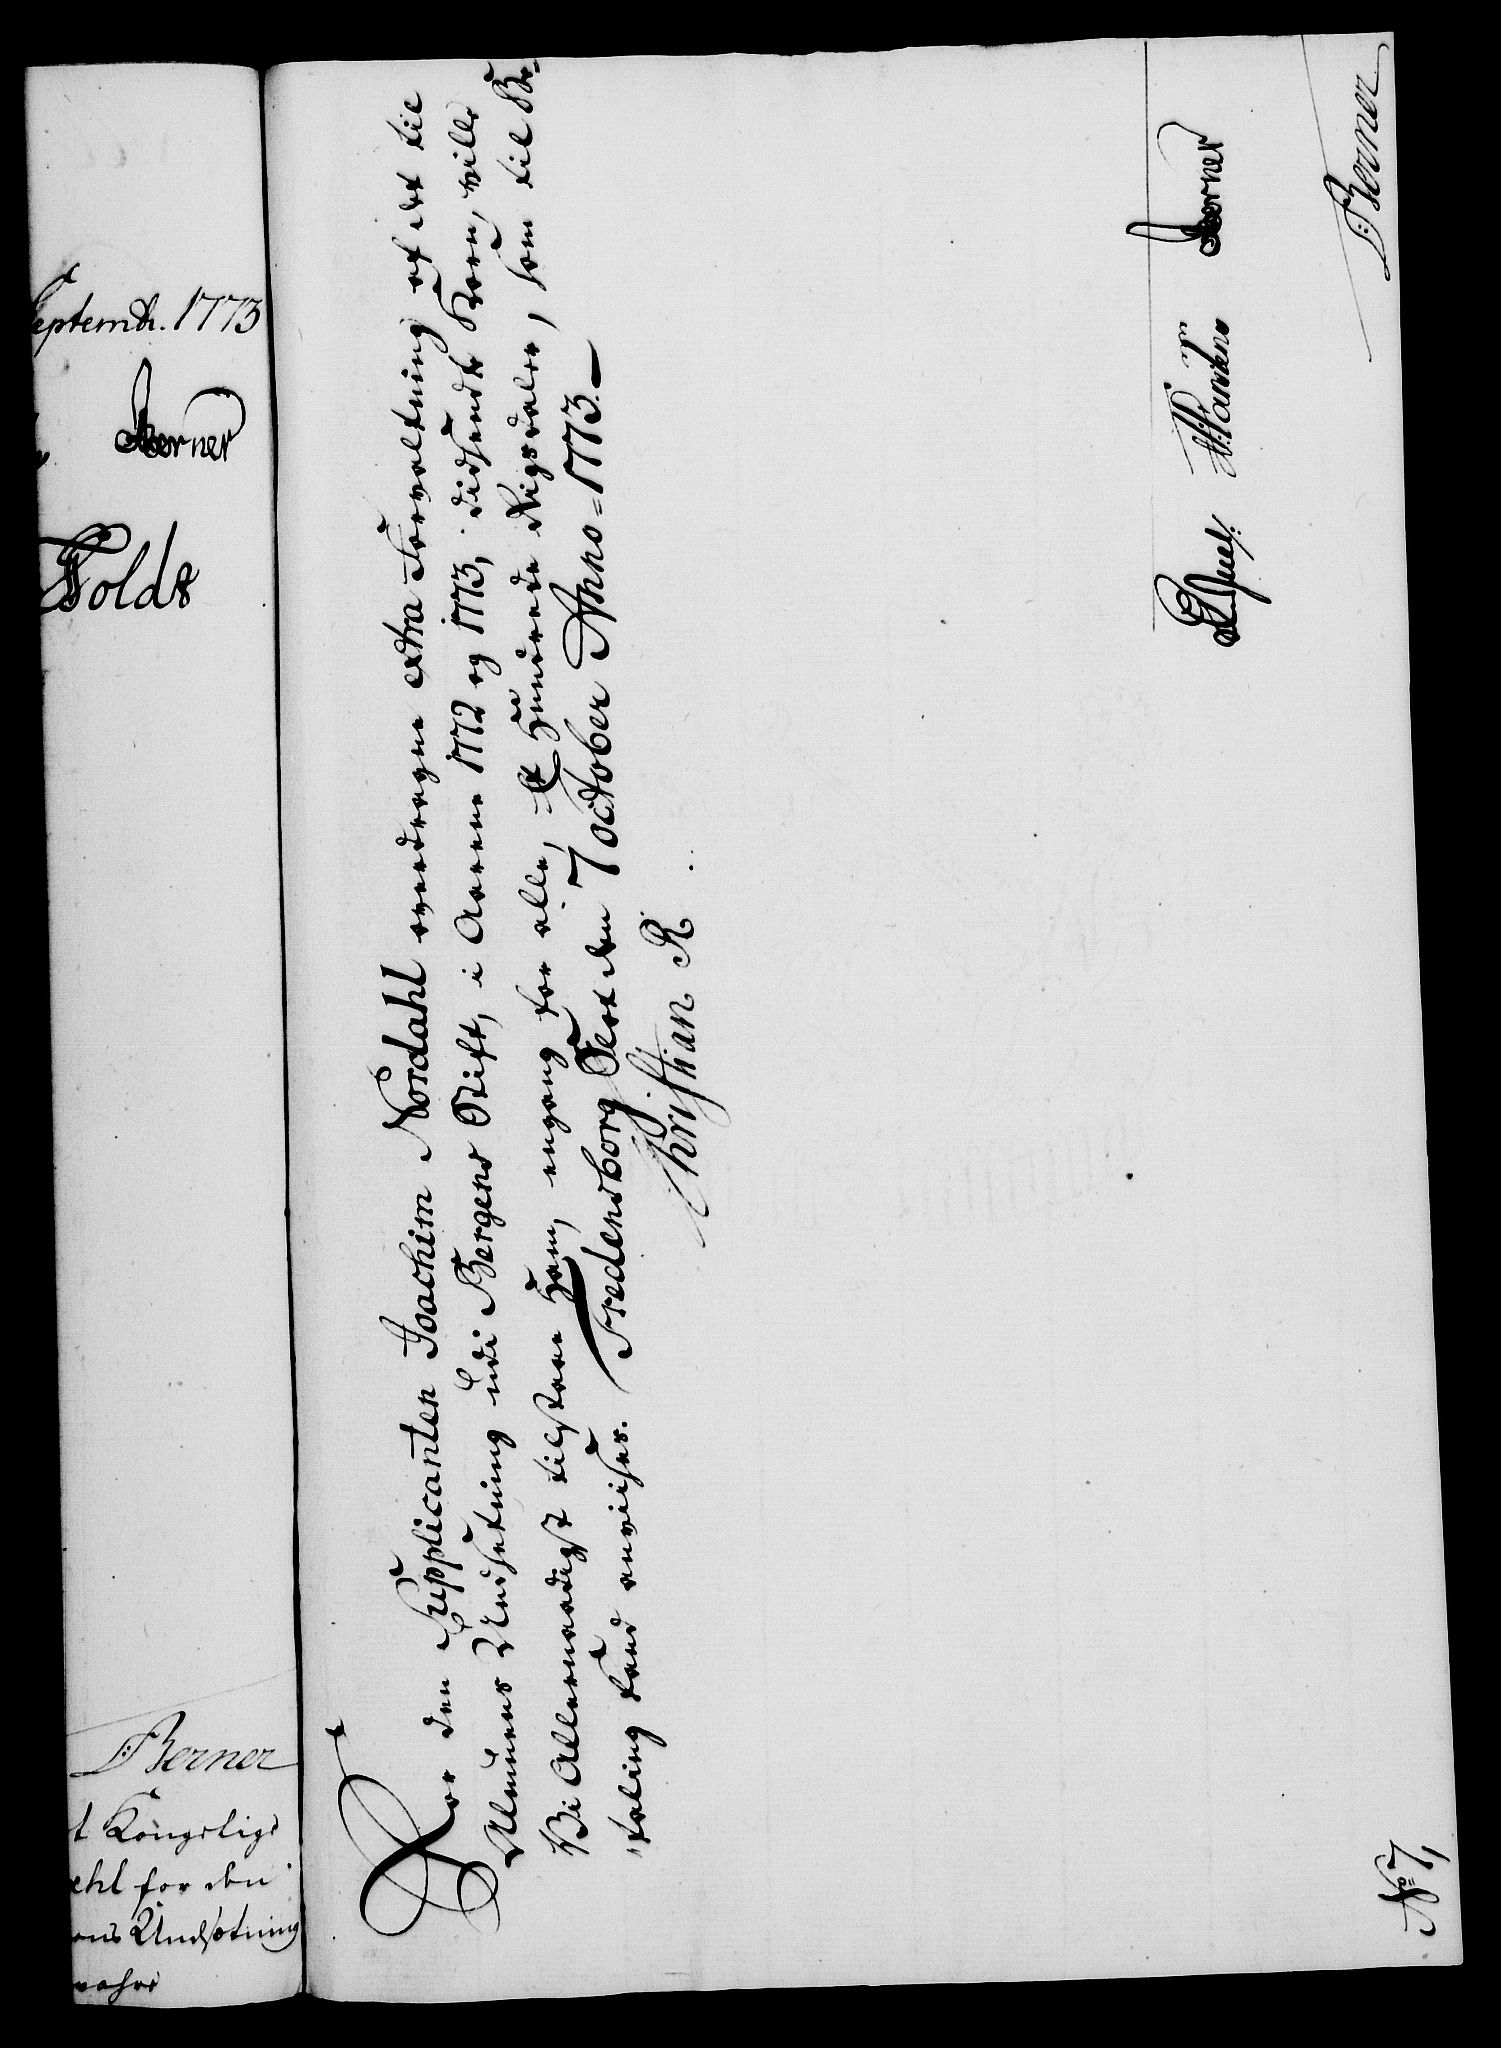 Septembr. 1773
Berner
Foldt
Berner
t Kongelige
ehl for den
ens Undsætning
For den Supplicanten Joachim Nordahl overdragne extra Forvaltning af det til
Almuens Undsætning udi Bergens Stift, i Aarene 1772 og 1773, udsendte Korn, ville
Vi Allernaadigst tilstaae Ham, engang for alle, Et Hundrede Rigsdaler, som til Be-
taling hand anviises. Fredensborg Slot den 7 October Anno 1773.
Christian R.
Juel
Berner
Berner
No 7,